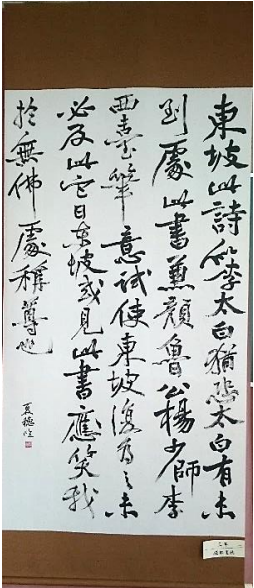 東坡此詩似李太白猶恐太白有未
到處此書兼顏魯公楊少師李
西臺筆意試使東坡復為之未
必及此它日東坡或見此書應笑我
於無佛處稱尊也